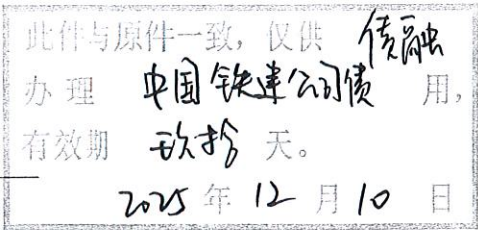 此件与原件一致，仅供 债融
办理 中国铁建公司债 用，
有效期 玖拾 天。
2025 年 12 月 10 日